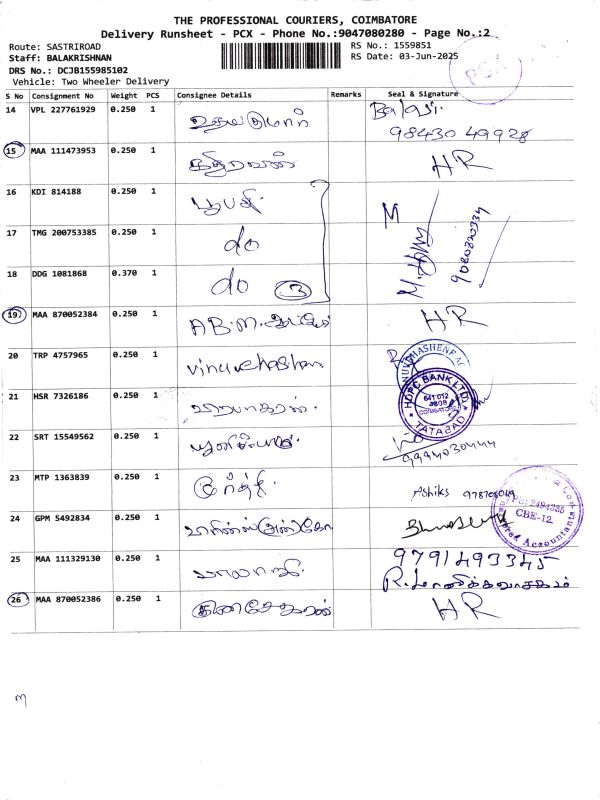 THE PROFESSIONAL COURIERS, COIMBATORE
Delivery Runsheet - PCX - Phone No.:9047080280 - Page No.:2
Route: SASTRIROAD RS No.: 1559851
Staff: BALAKRISHNAN RS Date: 03-Jun-2025
DRS No.: DCJB155985102
Vehicle: Two Wheeler Delivery
PCX
S No Consignment No Weight PCS Consignee Details Remarks Seal & Signature
14 VPL 227761929 0.250 1
98430 49928
15 MAA 111473953 0.250 1 கதிரவன் HR
16 KDI 814188 0.250 1 பூபதி M
17 TMG 200753385 0.250 1 do 9080820334
18 DDG 1081868 0.370 1 do 3
19 MAA 870052384 0.250 1 A B.M. HR
20 TRP 4757965 0.250 1
21 HSR 7326186 0.250 1
HDFC BANK LTD.
641 012
COIMBATORE
TATABAD
22 SRT 15549562 0.250 1
9994030444
23 MTP 1363839 0.250 1 மூர்த்தி
24 GPM 5492834 0.250 1
CBE-12
Accountants
25 MAA 111329130 0.250 1 பாலாஜி 9791493345
R. மாணிக்கவாசகம்
26 MAA 870052386 0.250 1 குணசேகரன் HR
m